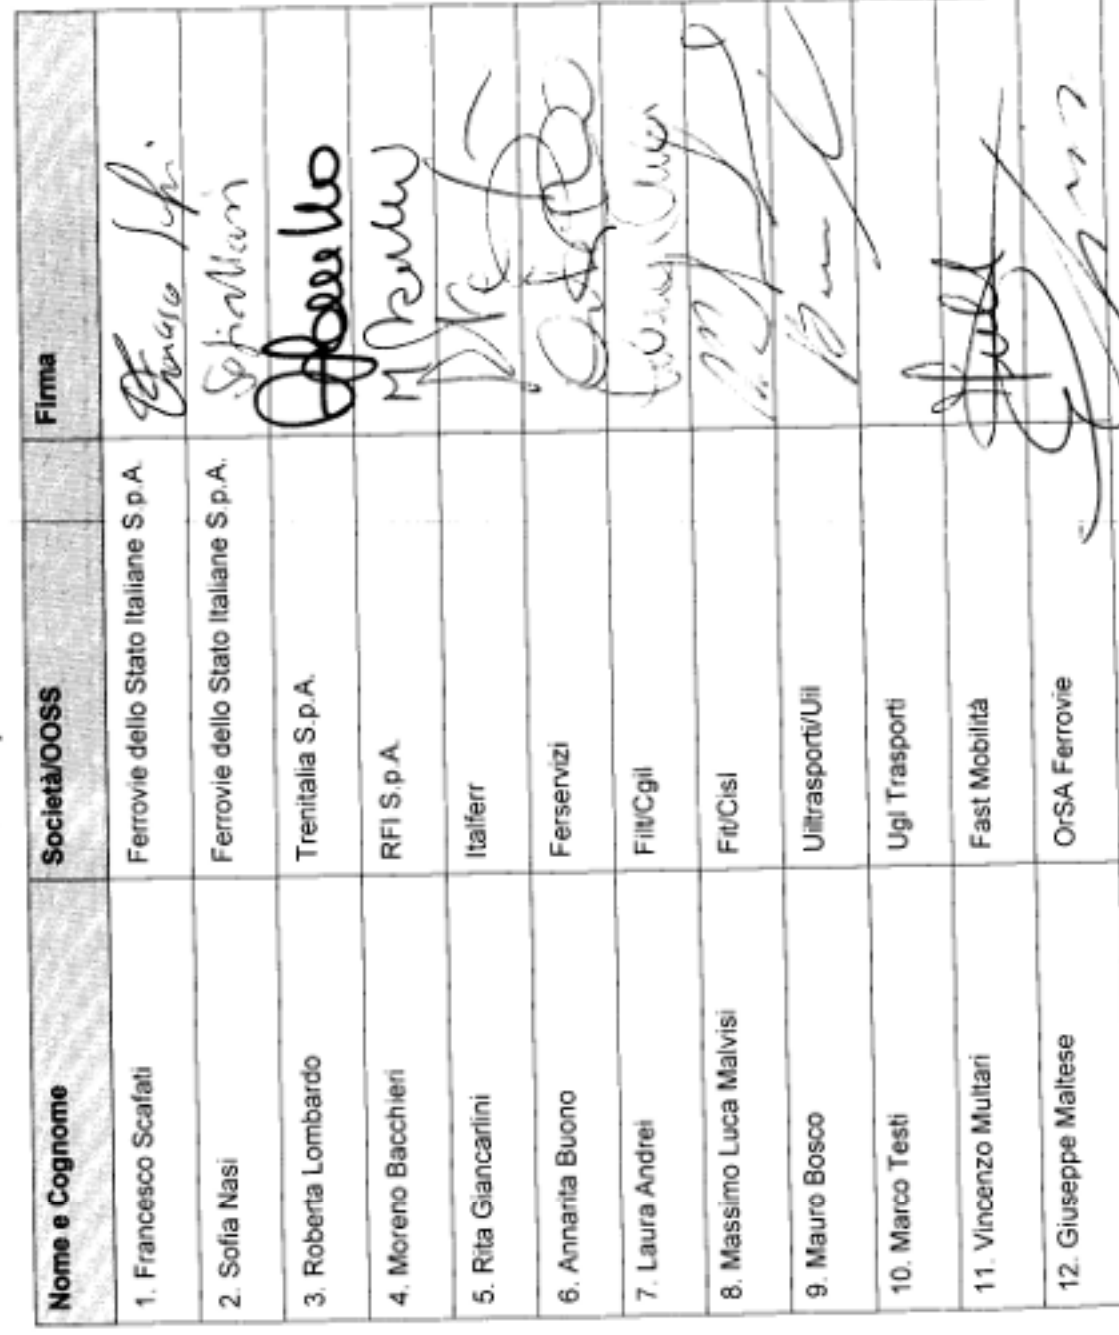 Nome e Cognome Società/OOSS Firma
1. Francesco Scafati Ferrovie dello Stato Italiane S.p.A.
2. Sofia Nasi Ferrovie dello Stato Italiane S.p.A.
3. Roberta Lombardo Trenitalia S.p.A.
4. Moreno Bacchieri RFI S.p.A.
5. Rita Giancarlini Italferr
6. Annarita Buono Ferservizi
7. Laura Andrei Filt/Cgil
8. Massimo Luca Malvisi Fit/Cisl
9. Mauro Bosco Uiltrasporti/Uil
10. Marco Testi Ugl Trasporti
11. Vincenzo Multari Fast Mobilità
12. Giuseppe Maltese OrSA Ferrovie